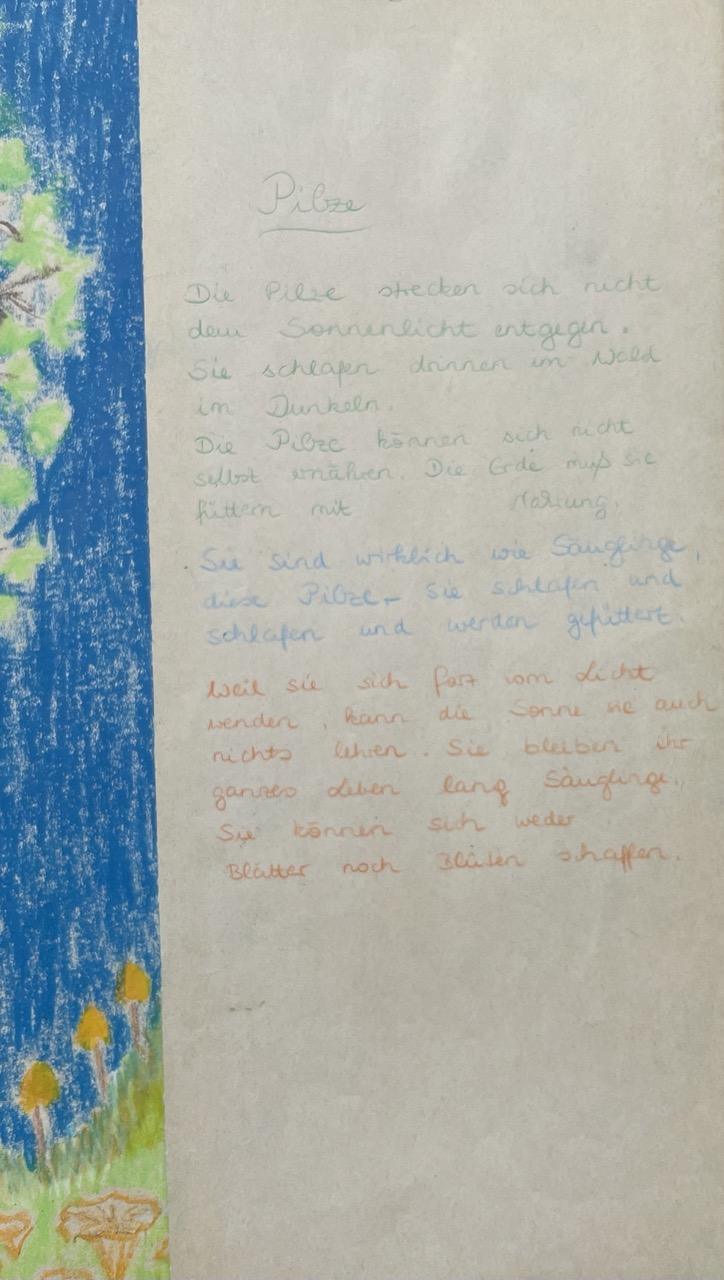 Pilze
Die Pilze strecken sich nicht
dem Sonnenlicht entgegen.
Sie schlafen drinnen im Wald
im Dunkeln.
Die Pilze können sich nicht
selbst ernähren. Die Erde muß sie
füttern mit Nahrung.
Sie sind wirklich wie Säuglinge,
diese Pilze – sie schlafen und
schlafen und werden gefüttert.
Weil sie sich fort vom Licht
wenden, kann die Sonne sie auch
nichts lehren. Sie bleiben ihr
ganzes Leben lang Säuglinge.
Sie können sich weder
Blätter noch Blüten schaffen.